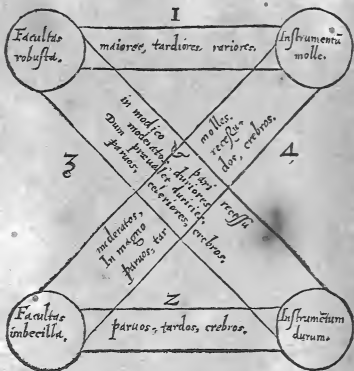 1
Facultas
robusta.
maiores, tardiores, rariores.
Instrumentū
molle.
3
in modico & pari recessu
moderatos, duriores,
Dum præualet durities,
paruos, celeriores, crebros.
4
molles.
recessu
dos, crebros.
moderatos,
In magno
paruos, tar
Facultas
imbecilla.
2
paruos, tardos, crebros.
Instrumētum
durum.